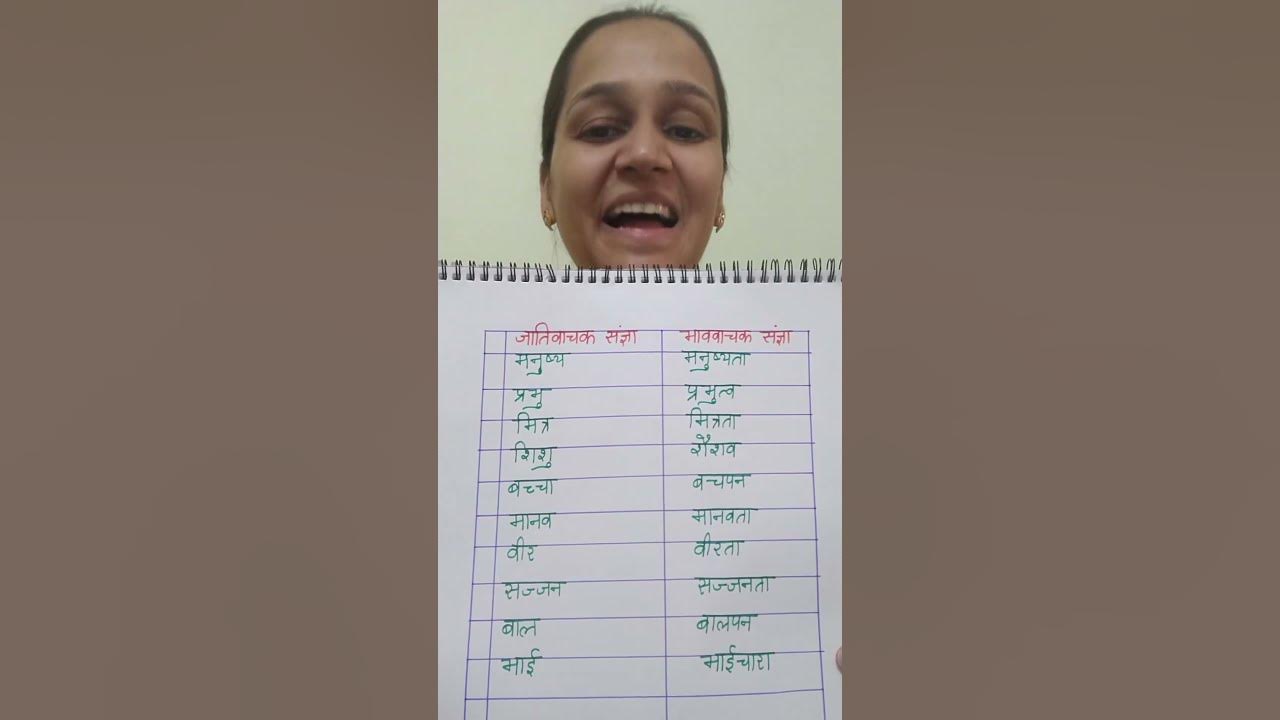 जातिवाचक संज्ञा भाववाचक संज्ञा
मनुष्य मनुष्यता
प्रभु प्रभुत्व
मित्र मित्रता
शिशु शैशव
बच्चा बच्चपन
मानव मानवता
वीर वीरता
सज्जन सज्जनता
बाल बालपन
भाई भाईचारा